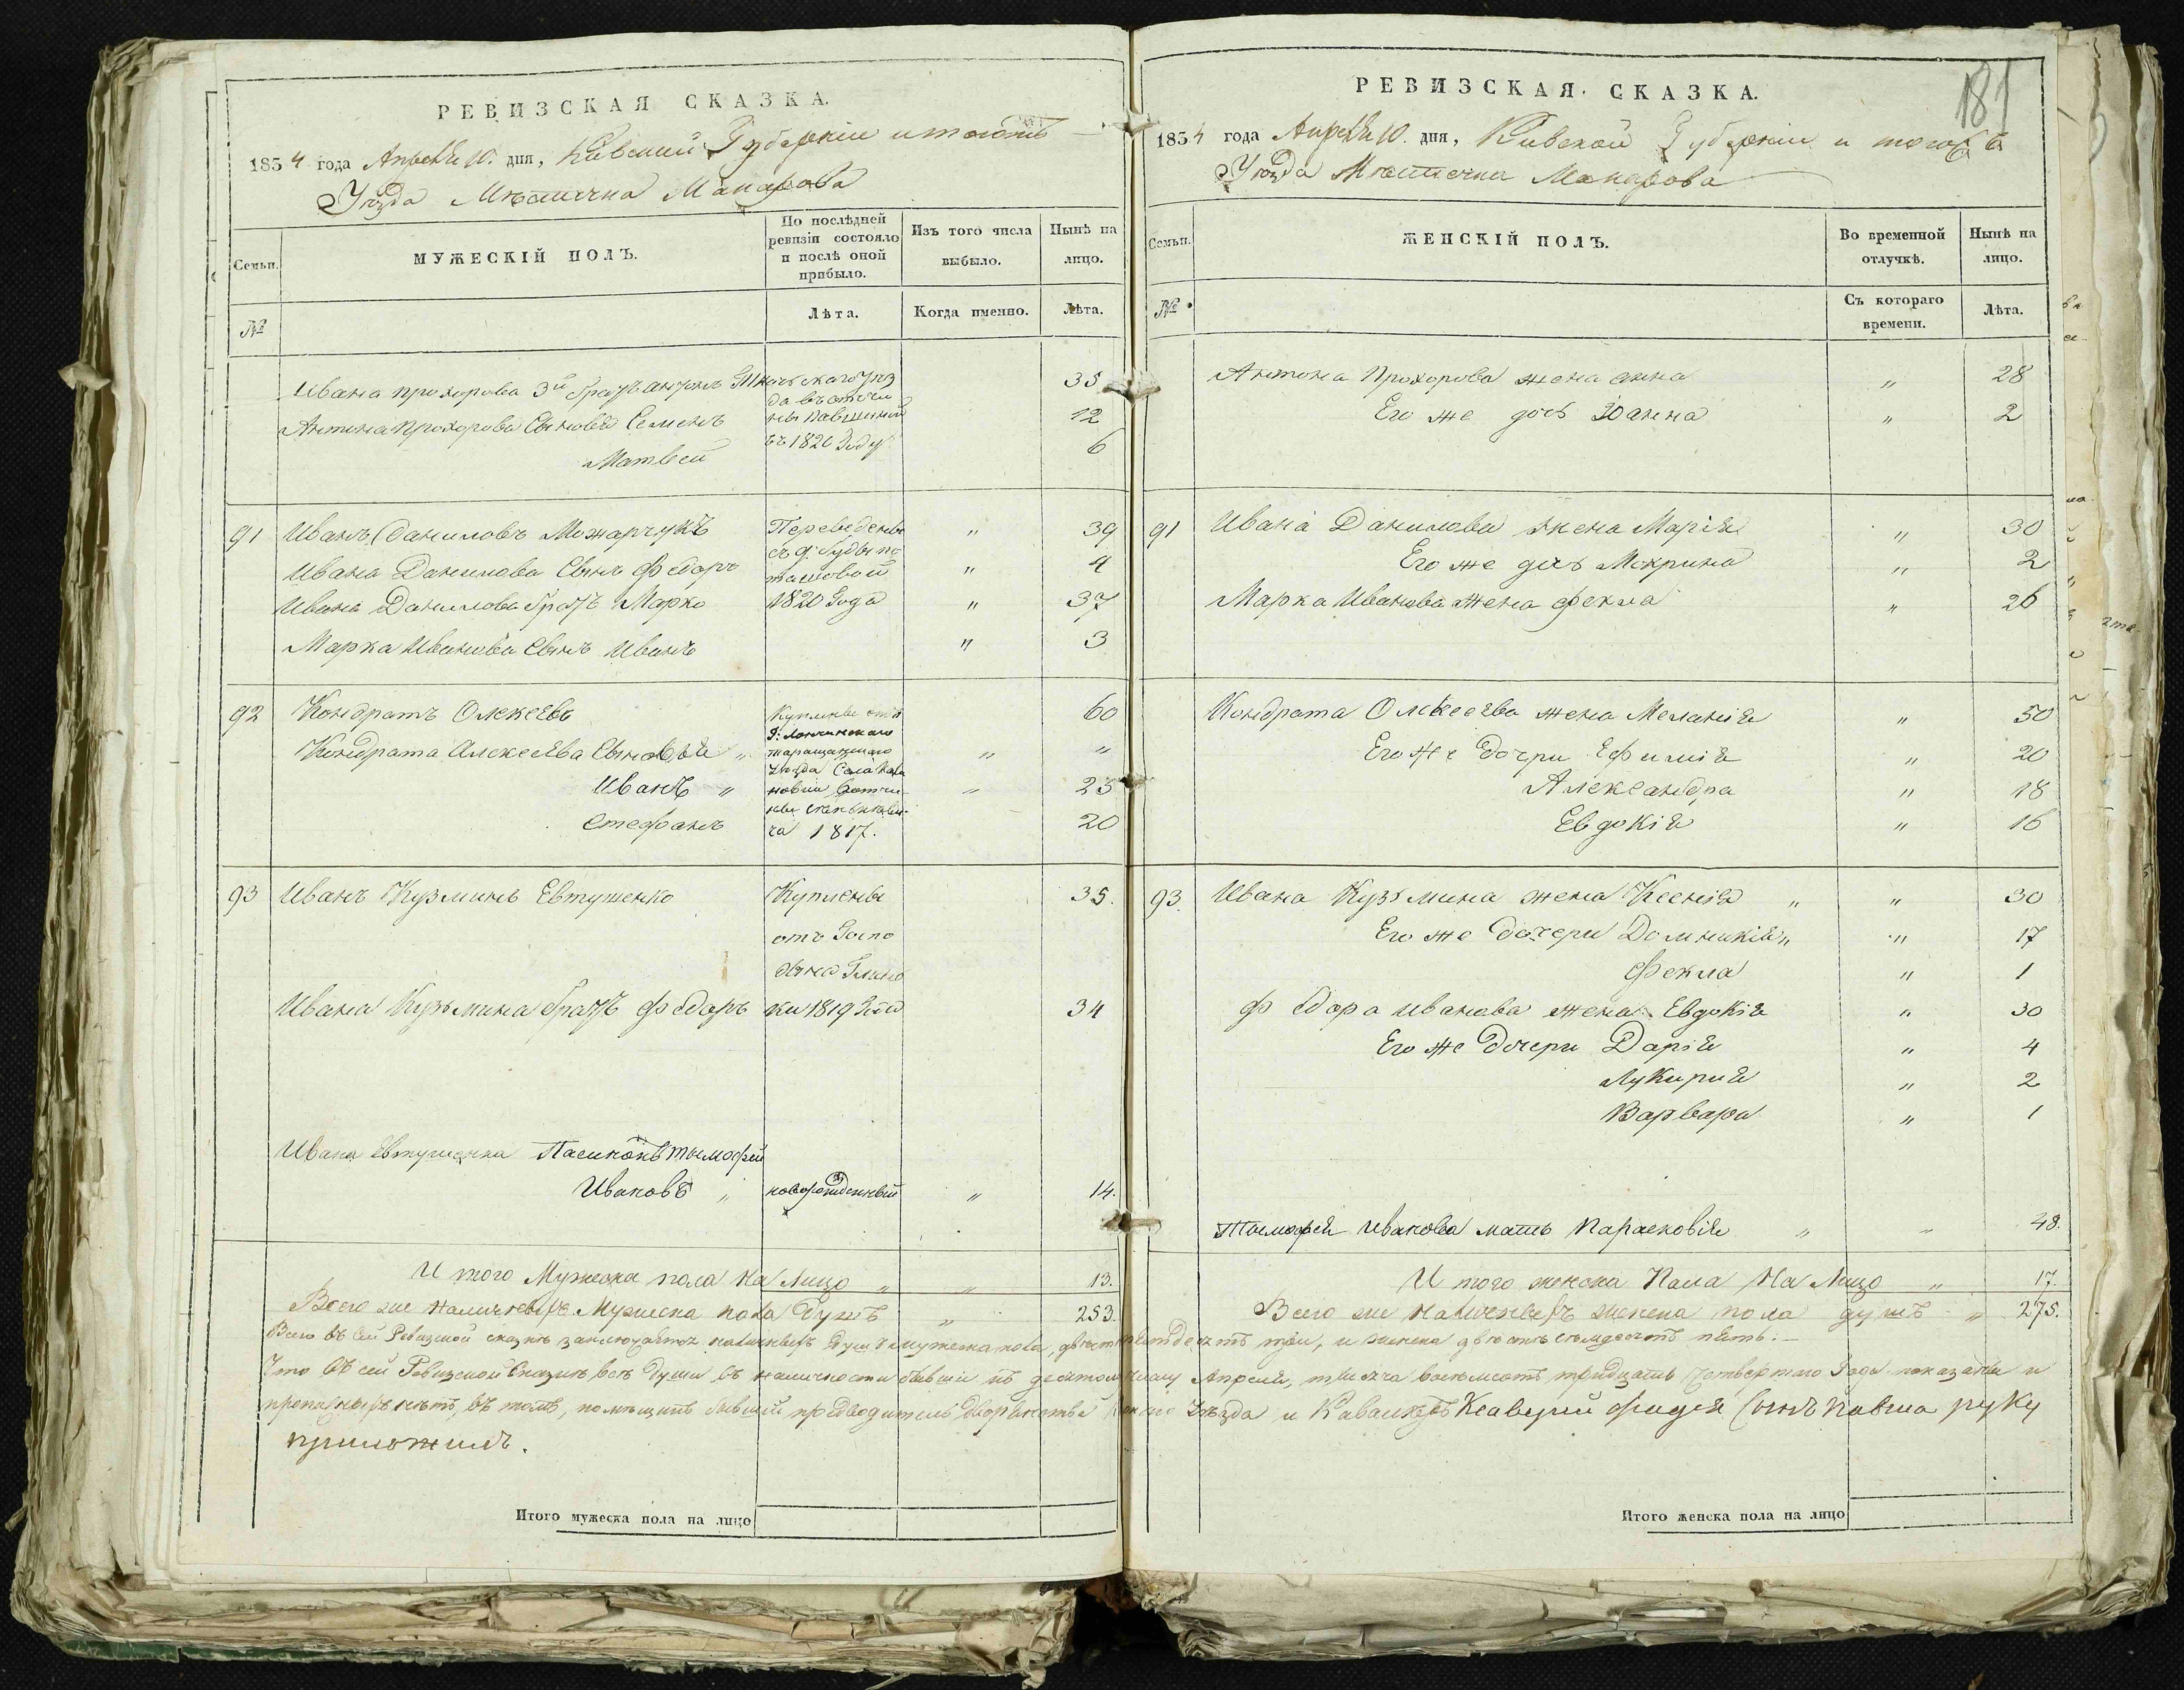 РЕВИЗСКАЯ СКАЗКА.
1834 года Апреля 10. дня, Киевской Губернии и тогожъ
Уезда Местечка Макарова
Семьи.
МУЖЕСКІЙ ПОЛЪ.
По послѣдней ревизіи состояло и послѣ оной прибыло.
Изъ того числа выбыло.
Нынѣ на лицо.
№
Лѣта.
Когда именно.
Лѣта.
Ивана прохорова 3й братъ антонъ 35
да въ отчи
Антона прохорова Сыновья Семенъ 12
въ 1820 Году
Матвей 6
91 Иванъ Даниловъ Можарчукъ Переведены " 39
Ивана Данилова Сынъ Федоръ " 4
Ивана Данилова братъ Марко 1820 Года " 37
Марка Иванова Сынъ Иванъ " 3
92 Кондратъ Олексеевъ Куплены отъ 60
Г:
Кондрата Алексеева Сыновья " таращанскаго " "
уезда Села
Иванъ " " 23
Стефанъ ча 1817. 20
93 Иванъ Кузминъ Евтушенко Куплены 35.
отъ Госпо
дина Глин
Ивана Кузьмина братъ Федоръ ки 1819 Года 34
Ивана Евтушенка Пасинокъ тимофей
Ивановъ " новорожденный " 14.
И того Мужеска пола на Лицо " " 13.
Всего же наличныхъ Мужеска пола Душъ " 253.
РЕВИЗСКАЯ СКАЗКА.
181
1834 года Апреля 10. дня, Киевской Губернии и тогожъ
Уезда Местечка Макарова
Семьи.
ЖЕНСКІЙ ПОЛЪ.
Во временной отлучкѣ.
Нынѣ на лицо.
№
Съ котораго времени.
Лѣта.
Антона Прохорова жена анна " 28
Его же дочь Юанна " 2
91 Ивана Данилова жена Марія " 30
Его же дочь Мокрина " 2
Марка Иванова жена Фекла " 26
Кондрата Олексеева жена Меланія " 50
Его же Дочри Ефимія " 20
Александра " 18
Евдокія " 16
93. Ивана Кузьмина жена Ксенія " " 30
Его же дочери Домникія " " 17
Фекла " 1
Федора иванова жена Евдокія " 30
Его же Дочери Дарія " 4
Лукирия " 2
Варвара " 1
Тимофея Иванова мать Парасковія " " 48.
И того женска Пола На Лицо " 17.
Всего же Наличныхъ женска пола душъ " 275.
Всего въ сей Ревизской сказкѣ заключается наличныхъ Душъ мужеска пола, двести пятдесятъ три, и женска двѣсти семдесятъ пять. —
Что въ сей Ревизской Сказкѣ всѣ души въ наличности бывшие къ десятому числу Апреля, тысяча восемсотъ тридцать четвертаго Года показаны и
прописныхъ нѣтъ, въ томъ, помѣщикъ бывший предводитель дворянства уезда и Кавалеръ Ксаверий Сынъ Павша руку
приложилъ.
Итого мужеска пола на лицо
Итого женска пола на лицо